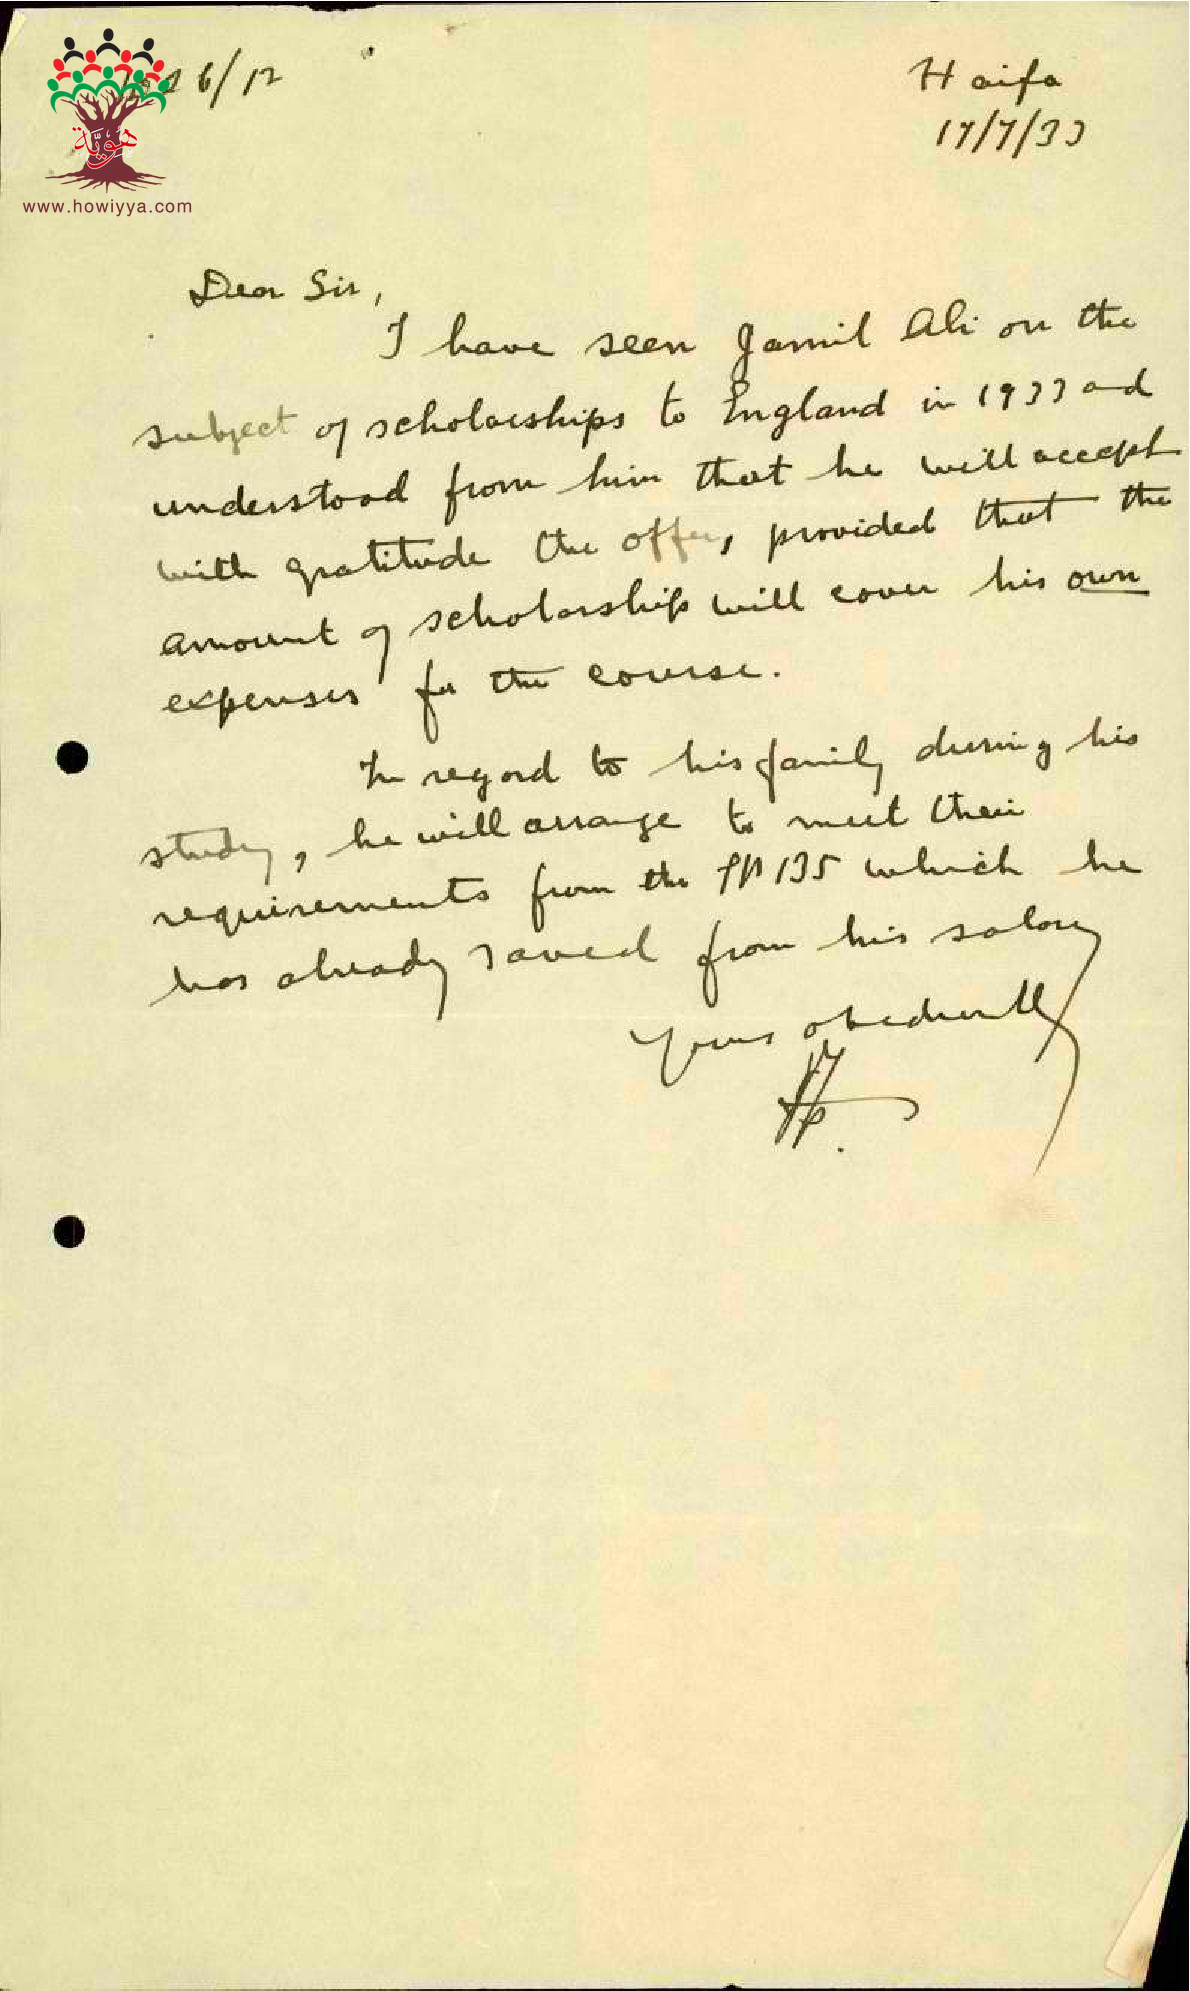 6/12
Haifa
17/7/33
هويّة
www.howiyya.com
Dear Sir,
I have seen Jamil Ali on the
subject of scholarships to England in 1933 and
understood from him that he will accept
with gratitude the offer, provided that the
amount of scholarship will cover his own
expenses for the course.
In regard to his family during his
study, he will arrange to meet their
requirements from the 135 which he
has already saved from his salary
Yours obediently